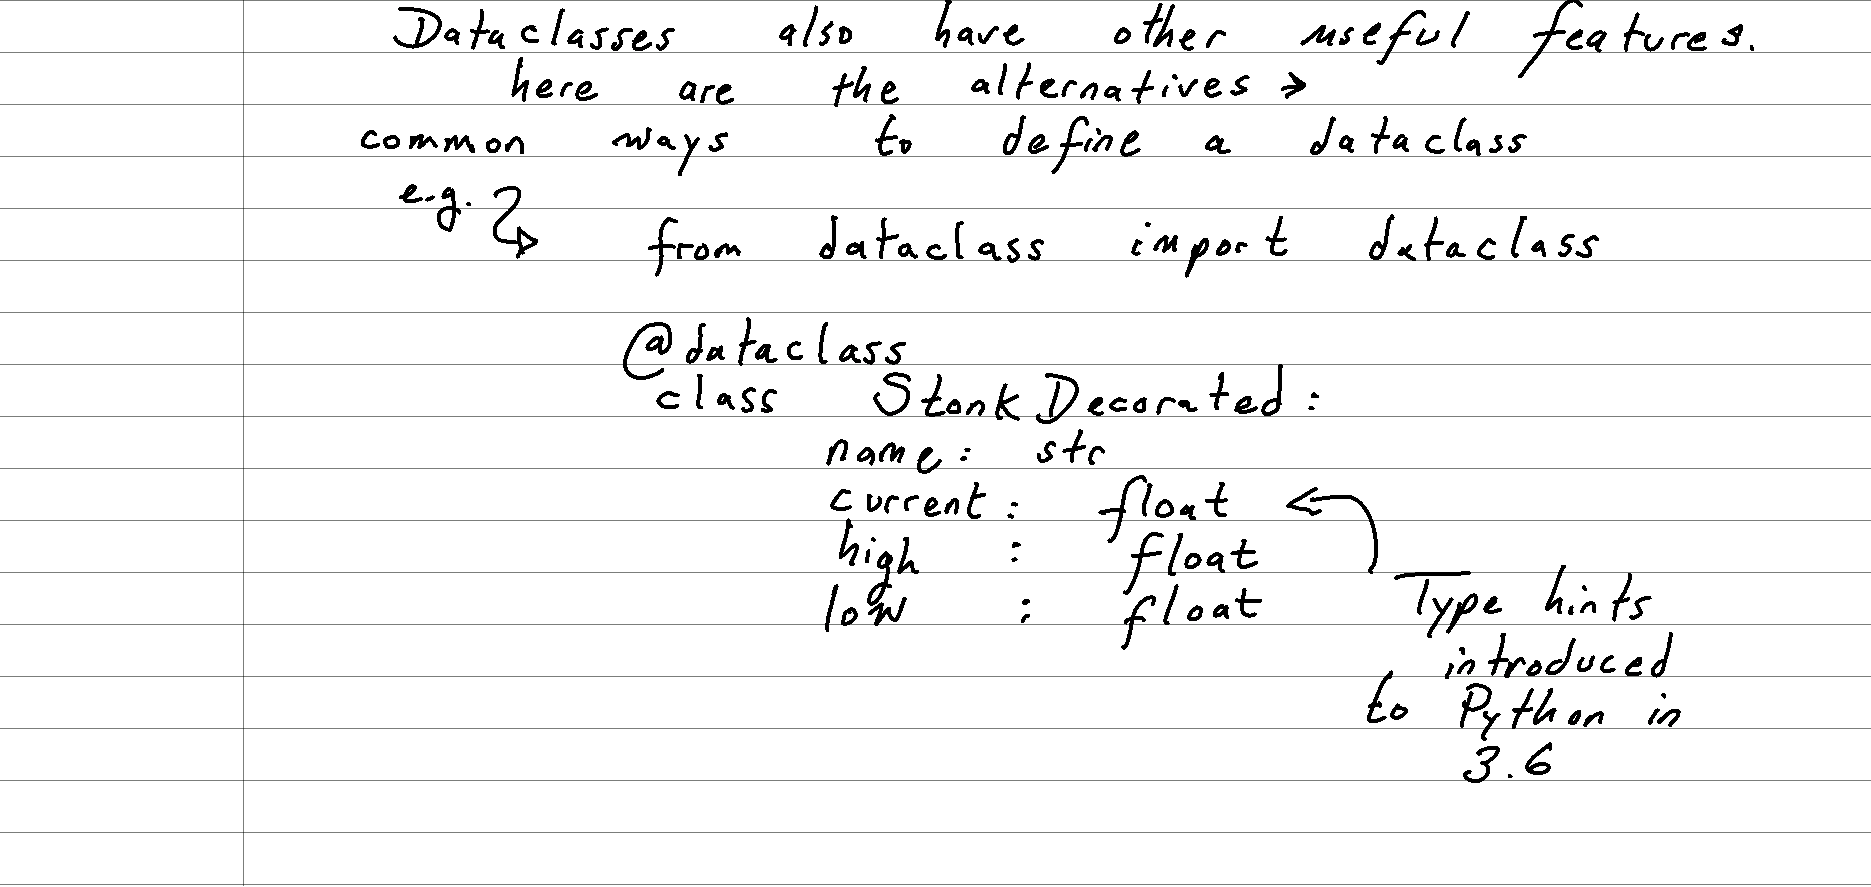 Dataclasses also have other useful features.
here are the alternatives →
common ways to define a dataclass
e.g.
from dataclass import dataclass
@dataclass
class StonkDecorated:
name: str
current: float
high : float
low : float
Type hints
introduced
to Python in
3.6